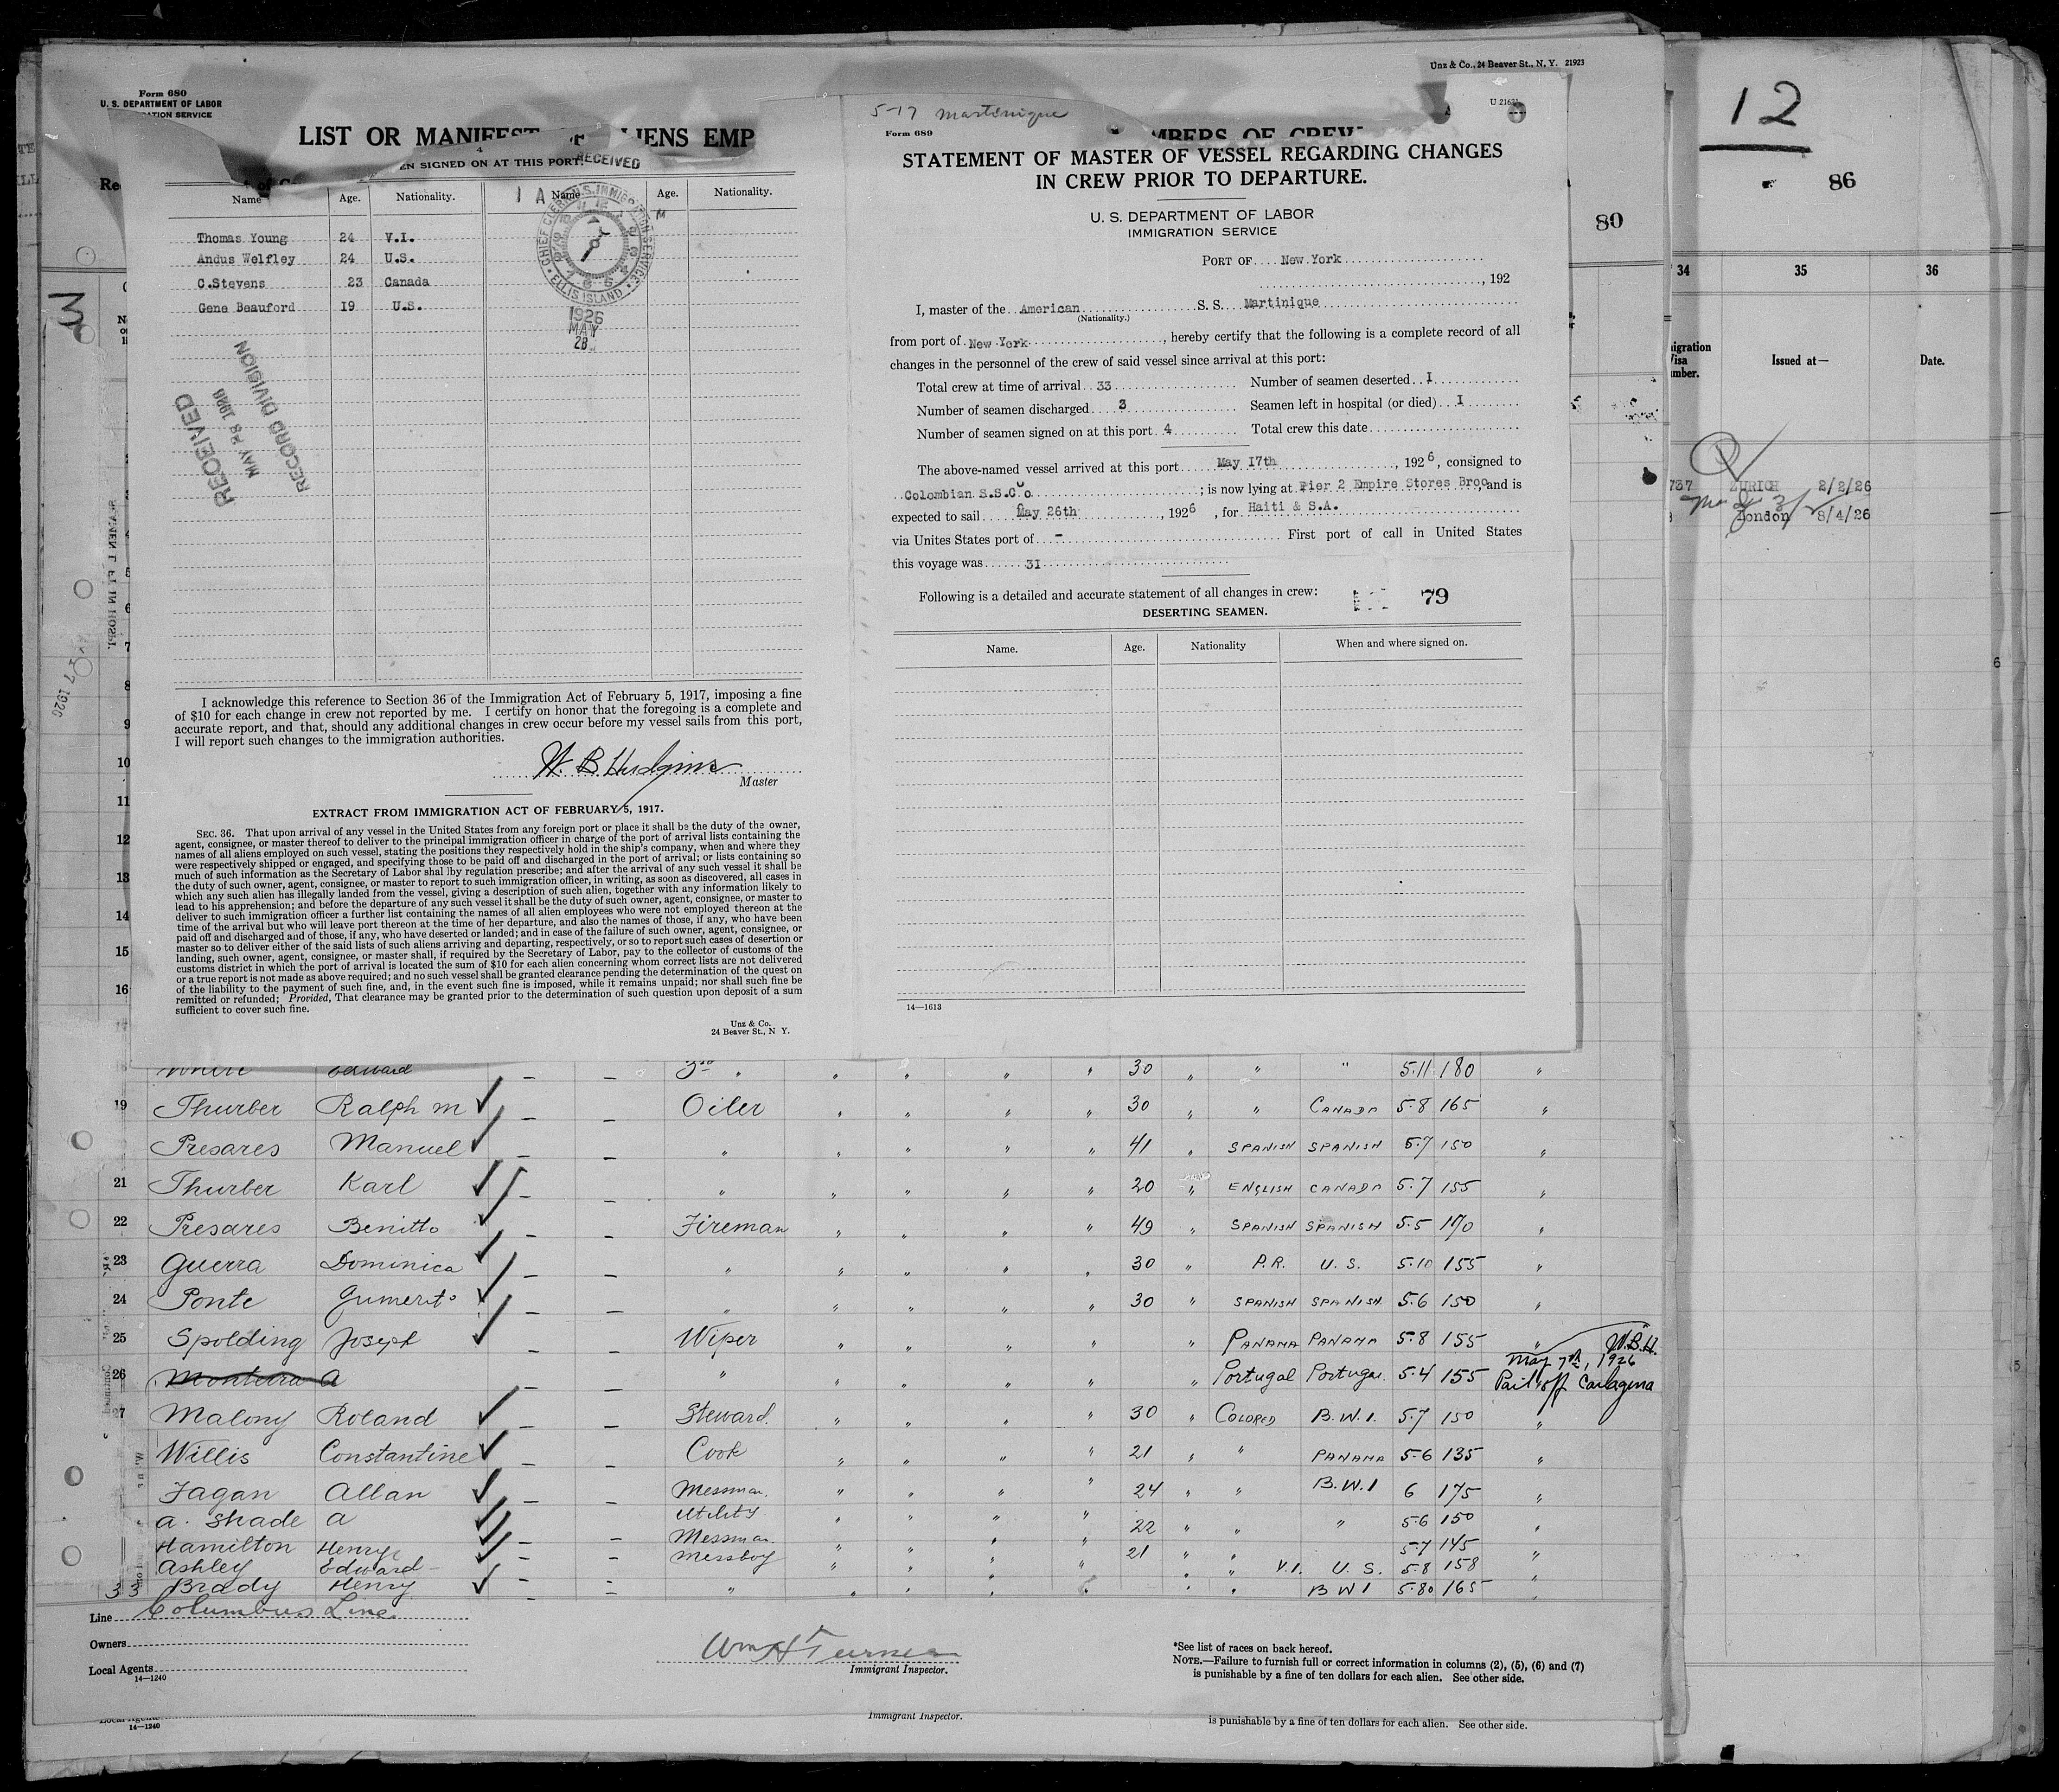 Unz & Co., 24 Beaver St., N. Y. 21923
Form 680
U. S. DEPARTMENT OF LABOR
LIST OR MANIFEST
LIENS EMP
EN SIGNED ON AT THIS PORT.
RECEIVED
Name Age. Nationality. Name Age. Nationality.
Thomas Young 24 V.I.
Andus Welfley 24 U.S.
C.Stevens 23 Canada
Gene Beauford 19 U.S.
CHIEF CLERK U.S. IMMIGRATION SERVICE
ELLIS ISLAND
1926
MAY
28
RECEIVED
MAY 28 1926
RECORD DIVISION
I acknowledge this reference to Section 36 of the Immigration Act of February 5, 1917, imposing a fine
of $10 for each change in crew not reported by me. I certify on honor that the foregoing is a complete and
accurate report, and that, should any additional changes in crew occur before my vessel sails from this port,
I will report such changes to the immigration authorities.
W. B. Hudgins
Master
EXTRACT FROM IMMIGRATION ACT OF FEBRUARY 5, 1917.
SEC. 36. That upon arrival of any vessel in the United States from any foreign port or place it shall be the duty of the owner,
agent, consignee, or master thereof to deliver to the principal immigration officer in charge of the port of arrival lists containing the
names of all aliens employed on such vessel, stating the positions they respectively hold in the ship's company, when and where they
were respectively shipped or engaged, and specifying those to be paid off and discharged in the port of arrival; or lists containing so
much of such information as the Secretary of Labor shal lby regulation prescribe; and after the arrival of any such vessel it shall be
the duty of such owner, agent, consignee, or master to report to such immigration officer, in writing, as soon as discovered, all cases in
which any such alien has illegally landed from the vessel, giving a description of such alien, together with any information likely to
lead to his apprehension; and before the departure of any such vessel it shall be the duty of such owner, agent, consignee, or master to
deliver to such immigration officer a further list containing the names of all alien employees who were not employed thereon at the
time of the arrival but who will leave port thereon at the time of her departure, and also the names of those, if any, who have been
paid off and discharged and of those, if any, who have deserted or landed; and in case of the failure of such owner, agent, consignee, or
master so to deliver either of the said lists of such aliens arriving and departing, respectively, or so to report such cases of desertion or
landing, such owner, agent, consignee, or master shall, if required by the Secretary of Labor, pay to the collector of customs of the
customs district in which the port of arrival is located the sum of $10 for each alien concerning whom correct lists are not delivered
or a true report is not made as above required; and no such vessel shall be granted clearance pending the determination of the quest on
of the liability to the payment of such fine, and, in the event such fine is imposed, while it remains unpaid; nor shall such fine be
remitted or refunded; Provided, That clearance may be granted prior to the determination of such question upon deposit of a sum
sufficient to cover such fine.
Unz & Co.
24 Beaver St., N Y.
5-17 Martinique
Form 689
MBERS OF CREW
STATEMENT OF MASTER OF VESSEL REGARDING CHANGES
IN CREW PRIOR TO DEPARTURE.
U. S. DEPARTMENT OF LABOR
IMMIGRATION SERVICE
PORT OF New York
, 192
I, master of the American S. S. Martinique
(Nationality.)
from port of New York, hereby certify that the following is a complete record of all
changes in the personnel of the crew of said vessel since arrival at this port:
Total crew at time of arrival 33 Number of seamen deserted I
Number of seamen discharged 3 Seamen left in hospital (or died) I
Number of seamen signed on at this port 4 Total crew this date
The above-named vessel arrived at this port May 17th, 1926, consigned to
Colombian S.S.Co; is now lying at Pier 2 Empire Stores Broo, and is
expected to sail May 26th, 1926, for Haiti & S.A.
via Unites States port of - First port of call in United States
this voyage was 31
Following is a detailed and accurate statement of all changes in crew: 79
DESERTING SEAMEN.
Name. Age. Nationality When and where signed on.
14—1613
12
86
80
34 35 36
Issued at— Date.
737 ZURICH 2/2/26
London 8/4/26
White Edward 3rd " 30 " " " 5.11 180 "
19 Thurber Ralph M Oiler 30 " " CANADA 5-8 165 "
Presares Manuel " 41 " SPANISH SPANISH 5.7 150 "
21 Thurber Karl " 20 " ENGLISH CANADA 5.7 155 "
22 Presares Benitto Fireman 49 " SPANISH SPANISH 5.5 170 "
23 Guerra Dominica " 30 " P.R. U.S. 5-10 155 "
24 Ponte Gumerito " 30 " SPANISH SPANISH 5.6 150 "
25 Spolding Joseph Wiper " PANAMA PANAMA 5-8 155 " W.B.H.
26 Monteira A " " Portugal Portugal 5.4 155 May 7th, 1926 Paid off Cartagena
27 Malony Roland Steward. 30 " COLORED B.W.I. 5.7 150 "
Willis Constantine Cook 21 " " PANAMA 5-6 135 "
Fagan Allan Messman. 24 " " B.W.I 6 175 "
A. Shade A Utility 22 " " " 5-6 150 "
Hamilton Henry Messman. 21 " " 5-7 145 "
Ashley Edward Messboy " " V.I. U.S. 5-8 158 "
33 Brady Henry " " " B W I 5-80 165 "
Line Columbus Line
Owners
Local Agents
14—1240
Wm H Turner
Immigrant Inspector.
*See list of races on back hereof.
NOTE.—Failure to furnish full or correct information in columns (2), (5), (6) and (7)
is punishable by a fine of ten dollars for each alien. See other side.
14—1240
Immigrant Inspector.
is punishable by a fine of ten dollars for each alien. See other side.